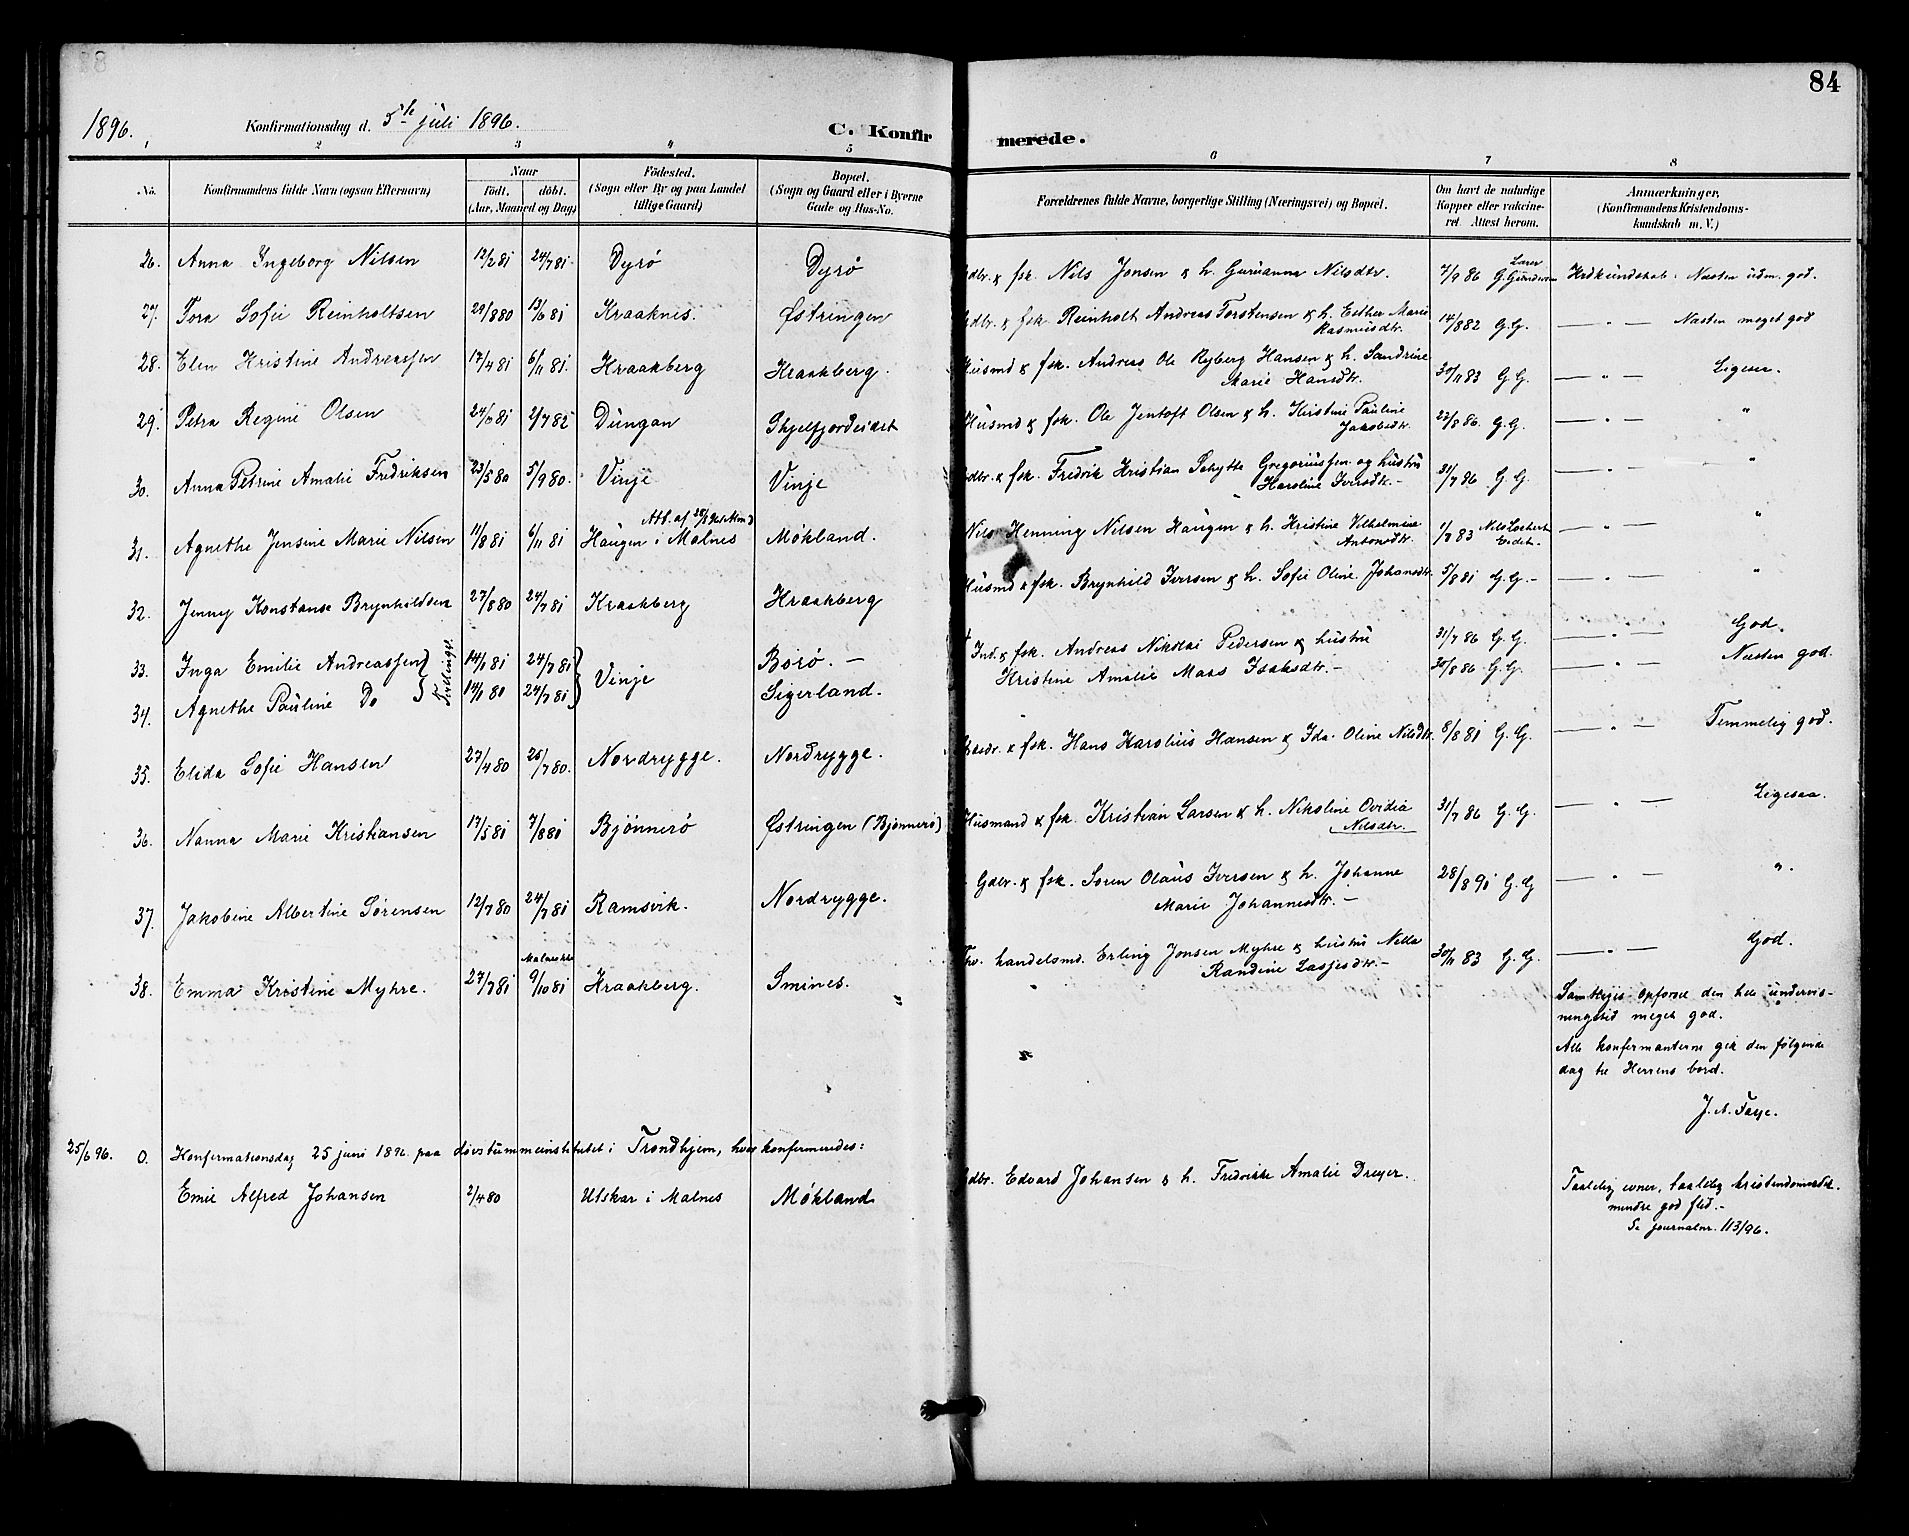 84
1896. Konfirmationsdag d. 5te juli 1896. C. Konfirmerede.
1 2 3 4 5 6 7 8
No. Konfirmandens fulde Navn (ogsaa Efternavn) Naar Födt. döbt. (Aar, Maaned og Dag) Födested. (Sogn eller By og paa Landet tillige Gaard) Bopæl. (Sogn og Gaard eller i Byerne Gade og Hus-No. Forældrenes fulde Navne, borgerlige Stilling (Næringsvei) og Bopæl. Om havt de naturlige Kopper eller vakcineret Attest herom. Anmærkninger. (Konfirmandens Kristendomskundskab m. V.)
26. Anna Ingeborg Nilsen 12/2 81 24/7 81 Dyrø Dyrø Gdbr. & fsk. Nils Jonsen & h. Gurianna Nilsdtr. 7/9 86 Lærer G. Gundersen Krdkundskab: Næsten udm. god.
27. Tora Sofie Reinholtsen 29/8 80 13/6 81 Kraaknes. Østringen Gdbr. & fsk. Reinholt Andreas Torstensen & h. Esther Marie Rasmusdtr. 14/8 82 G. G. — " — Næsten meget god
28. Elen Kristine Andreassen 17/4 81 6/11 81. Kraakberg Kraakberg. Husmd & fsk. Andreas Ole Ryberg Hansen & h. Sandrine Marie Hansdtr. 30/11 83 G. G. — " — Ligesaa.
29. Petra Regine Olsen 24/10 81 2/7 82 Dungan Skjelfjordeidet Husmd & fsk. Ole Jentoft Olsen & h. Kristine Pauline Jakobsdtr. 22/8 86. G. G. — " — "
30. Anna Petrine Amalie Fredriksen 23/5 80 5/9 80. Vinje Vinje Gdbr. & fsk. Fredrik Kristian Schytte Gregoriussen og hustru Haroline Iversdtr. — 31/7 86 G. G. — " — "
31. Agnethe Jensine Marie Nilsen 11/8 81 6/11 81 Haugen i Malnes Møkland. Nils Henning Nilsen Haugen & h. Kristine Vilhelmine Antonsdtr. 1/8 83 — " — "
32. Jenny Konstanse Brynhildsen 27/8 80 24/7 81 Kraakberg Kraakberg Husmd & fsk. Brynhild Iversen & h. Sofie Oline Johansdtr. 5/8 81 G. G. — — " — "
33. Inga Emilie Andreassen } Tvillinger. 14/1 81 24/7 81 } Vinje Børø. — Ind. & fsk. Andreas Nikolai Pedersen & hustru 31/7 86 G. G. — " — God.
34. Agnethe Pauline Do 14/1 80 24/7 81 Sigerland. Kristine Amalie Maas Isaksdtr. — 30/8 86 G. G. — " — Næsten god.
35. Elida Sofie Hansen 27/4 80 25/7 80. Nordrygge. Nordrygge. & fsk. Hans Karolius Hansen & Ida Oline Nilsdtr. 8/8 81 G. G. — " — Temmelig god.
36. Nanna Marie Kristiansen 17/5 81 7/8 81 Bjønnerø Østringen (Bjønnerø) Husmand & fsk. Kristian Larsen & h. Nikoline Ovidia Nilsdtr. 31/7 86 G. G. — " — Ligesaa.
37. Jakobine Albertine Sørensen 12/7 80 24/7 81 Ramsvik. Nordrygge. Gdbr. & fsk. Søren Olaus Iversen & h. Johanne Marie Johannesdtr. — 28/8 91 G. G — " — ".
38. Emma Kristine Myhre. 27/7 81 9/10 81 Kraakberg. Smines. handelsmd. Erling Jonsen Myhre & hustru Nella Randine Lassesdtr. — 30/11 83 G. G. — " — God.
Samtliges opførsel den hele undervisningstid meget god.
Alle konfirmanterne gik den følgende dag til Herrens bord.
J. A. Faye.
25/6 96. 0. Konfirmationsdag 25 juni 1896 paa døvstummeinstitutet i Trondhjem, hvor konfirmeredes:
Emil Alfred Johansen 2/4 80 Utskar i Malnes Møkland Gdbr. Edvard Johansen & h. Fredrikke Amalie Dreyer. Taalelig evner, taalelig kristendomsk. mindre god flid. — Se journalnr. 113/96.